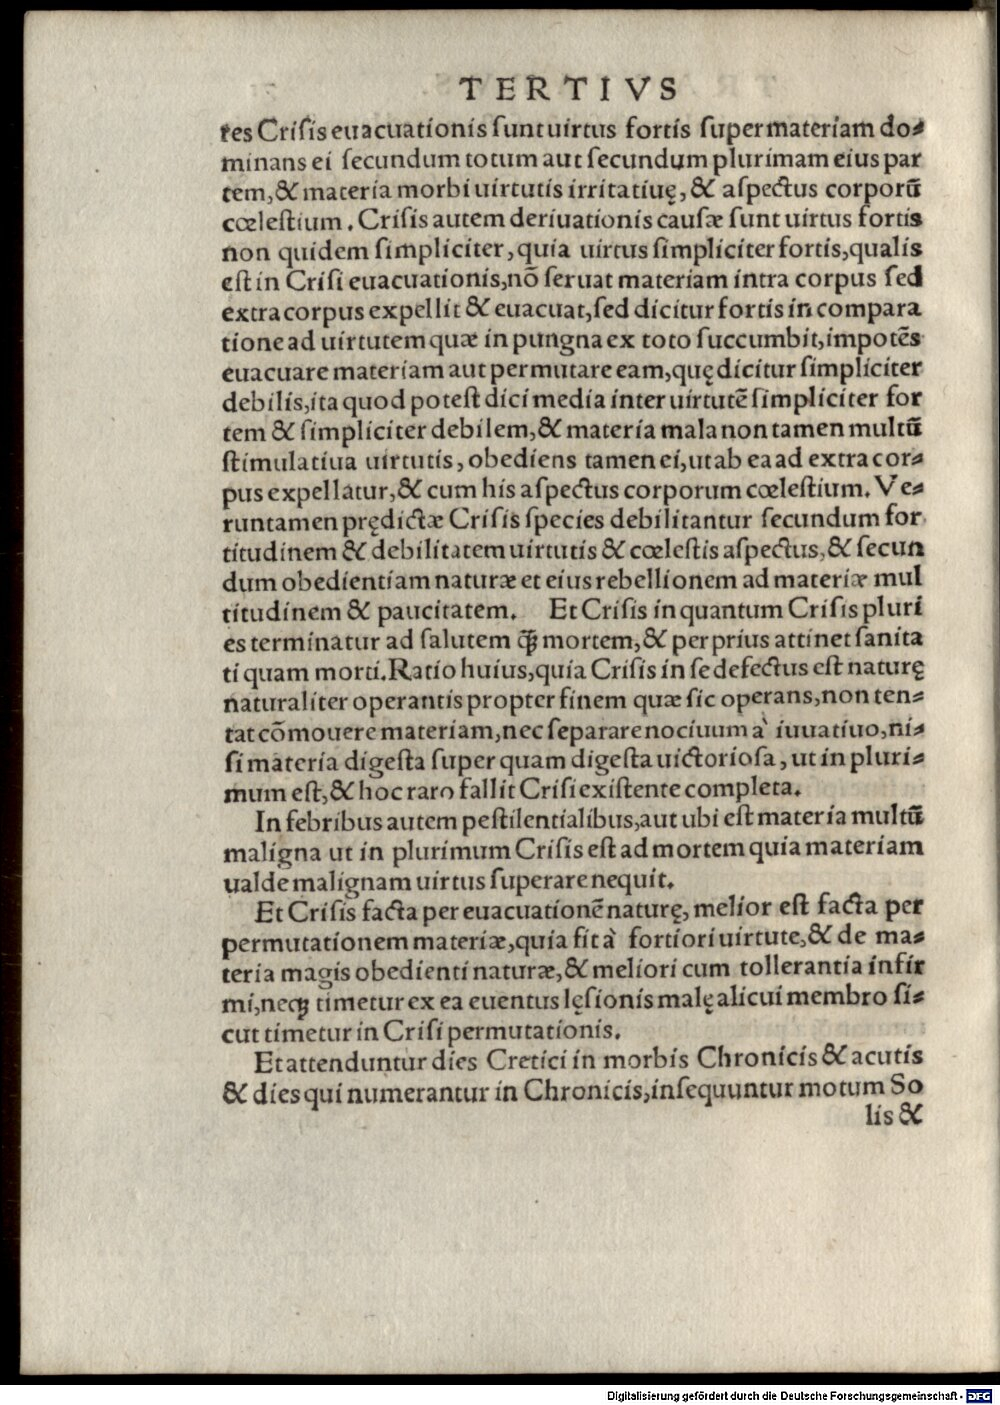 TERTIVS
res Crisis euacuationis sunt uirtus fortis super materiam do⸗
minans ei secundum totum aut secundum plurimam eius par
tem, & materia morbi uirtutis irritatiuę, & aspectus corporū
cœlestium. Crisis autem deriuationis causæ sunt uirtus fortis
non quidem simpliciter, quia uirtus simpliciter fortis, qualis
est in Crisi euacuationis, nō seruat materiam intra corpus sed
extra corpus expellit & euacuat, sed dicitur fortis in compara
tione ad uirtutem quæ in pungna ex toto succumbit, impotēs
euacuare materiam aut permutare eam, quę dicitur simpliciter
debilis, ita quod potest dici media inter uirtutē simpliciter for
tem & simpliciter debilem, & materia mala non tamen multū
stimulatiua uirtutis, obediens tamen ei, ut ab ea ad extra cor⸗
pus expellatur, & cum his aspectus corporum cœlestium. Ve⸗
runtamen prędictæ Crisis species debilitantur secundum for
titudinem & debilitatem uirtutis & cœlestis aspectus, & secun
dum obedientiam naturæ et eius rebellionem ad materiæ mul
titudinem & paucitatem. Et Crisis in quantum Crisis pluri
es terminatur ad salutem ꝗ̃ mortem, & per prius attinet sanita
ti quam morti. Ratio huius, quia Crisis in se defectus est naturę
naturaliter operantis propter finem quæ sic operans, non ten⸗
tat cōmouere materiam, nec separare nociuum à iuuatiuo, ni⸗
si materia digesta super quam digesta uictoriosa, ut in pluri⸗
mum est, & hoc raro fallit Crisi existente completa.
In febribus autem pestilentialibus, aut ubi est materia multū
maligna ut in plurimum Crisis est ad mortem quia materiam
ualde malignam uirtus superare nequit.
Et Crisis facta per euacuationē naturę, melior est facta per
permutationem materiæ, quia fit à fortiori uirtute, & de ma⸗
teria magis obedienti naturæ, & meliori cum tollerantia infir
mi, neqꝫ timetur ex ea euentus lęsionis malę alicui membro si⸗
cut timetur in Crisi permutationis.
Et attenduntur dies Cretici in morbis Chronicis & acutis
& dies qui numerantur in Chronicis, insequuntur motum So
lis &
Digitalisierung gefördert durch die Deutsche Forschungsgemeinschaft - DFG